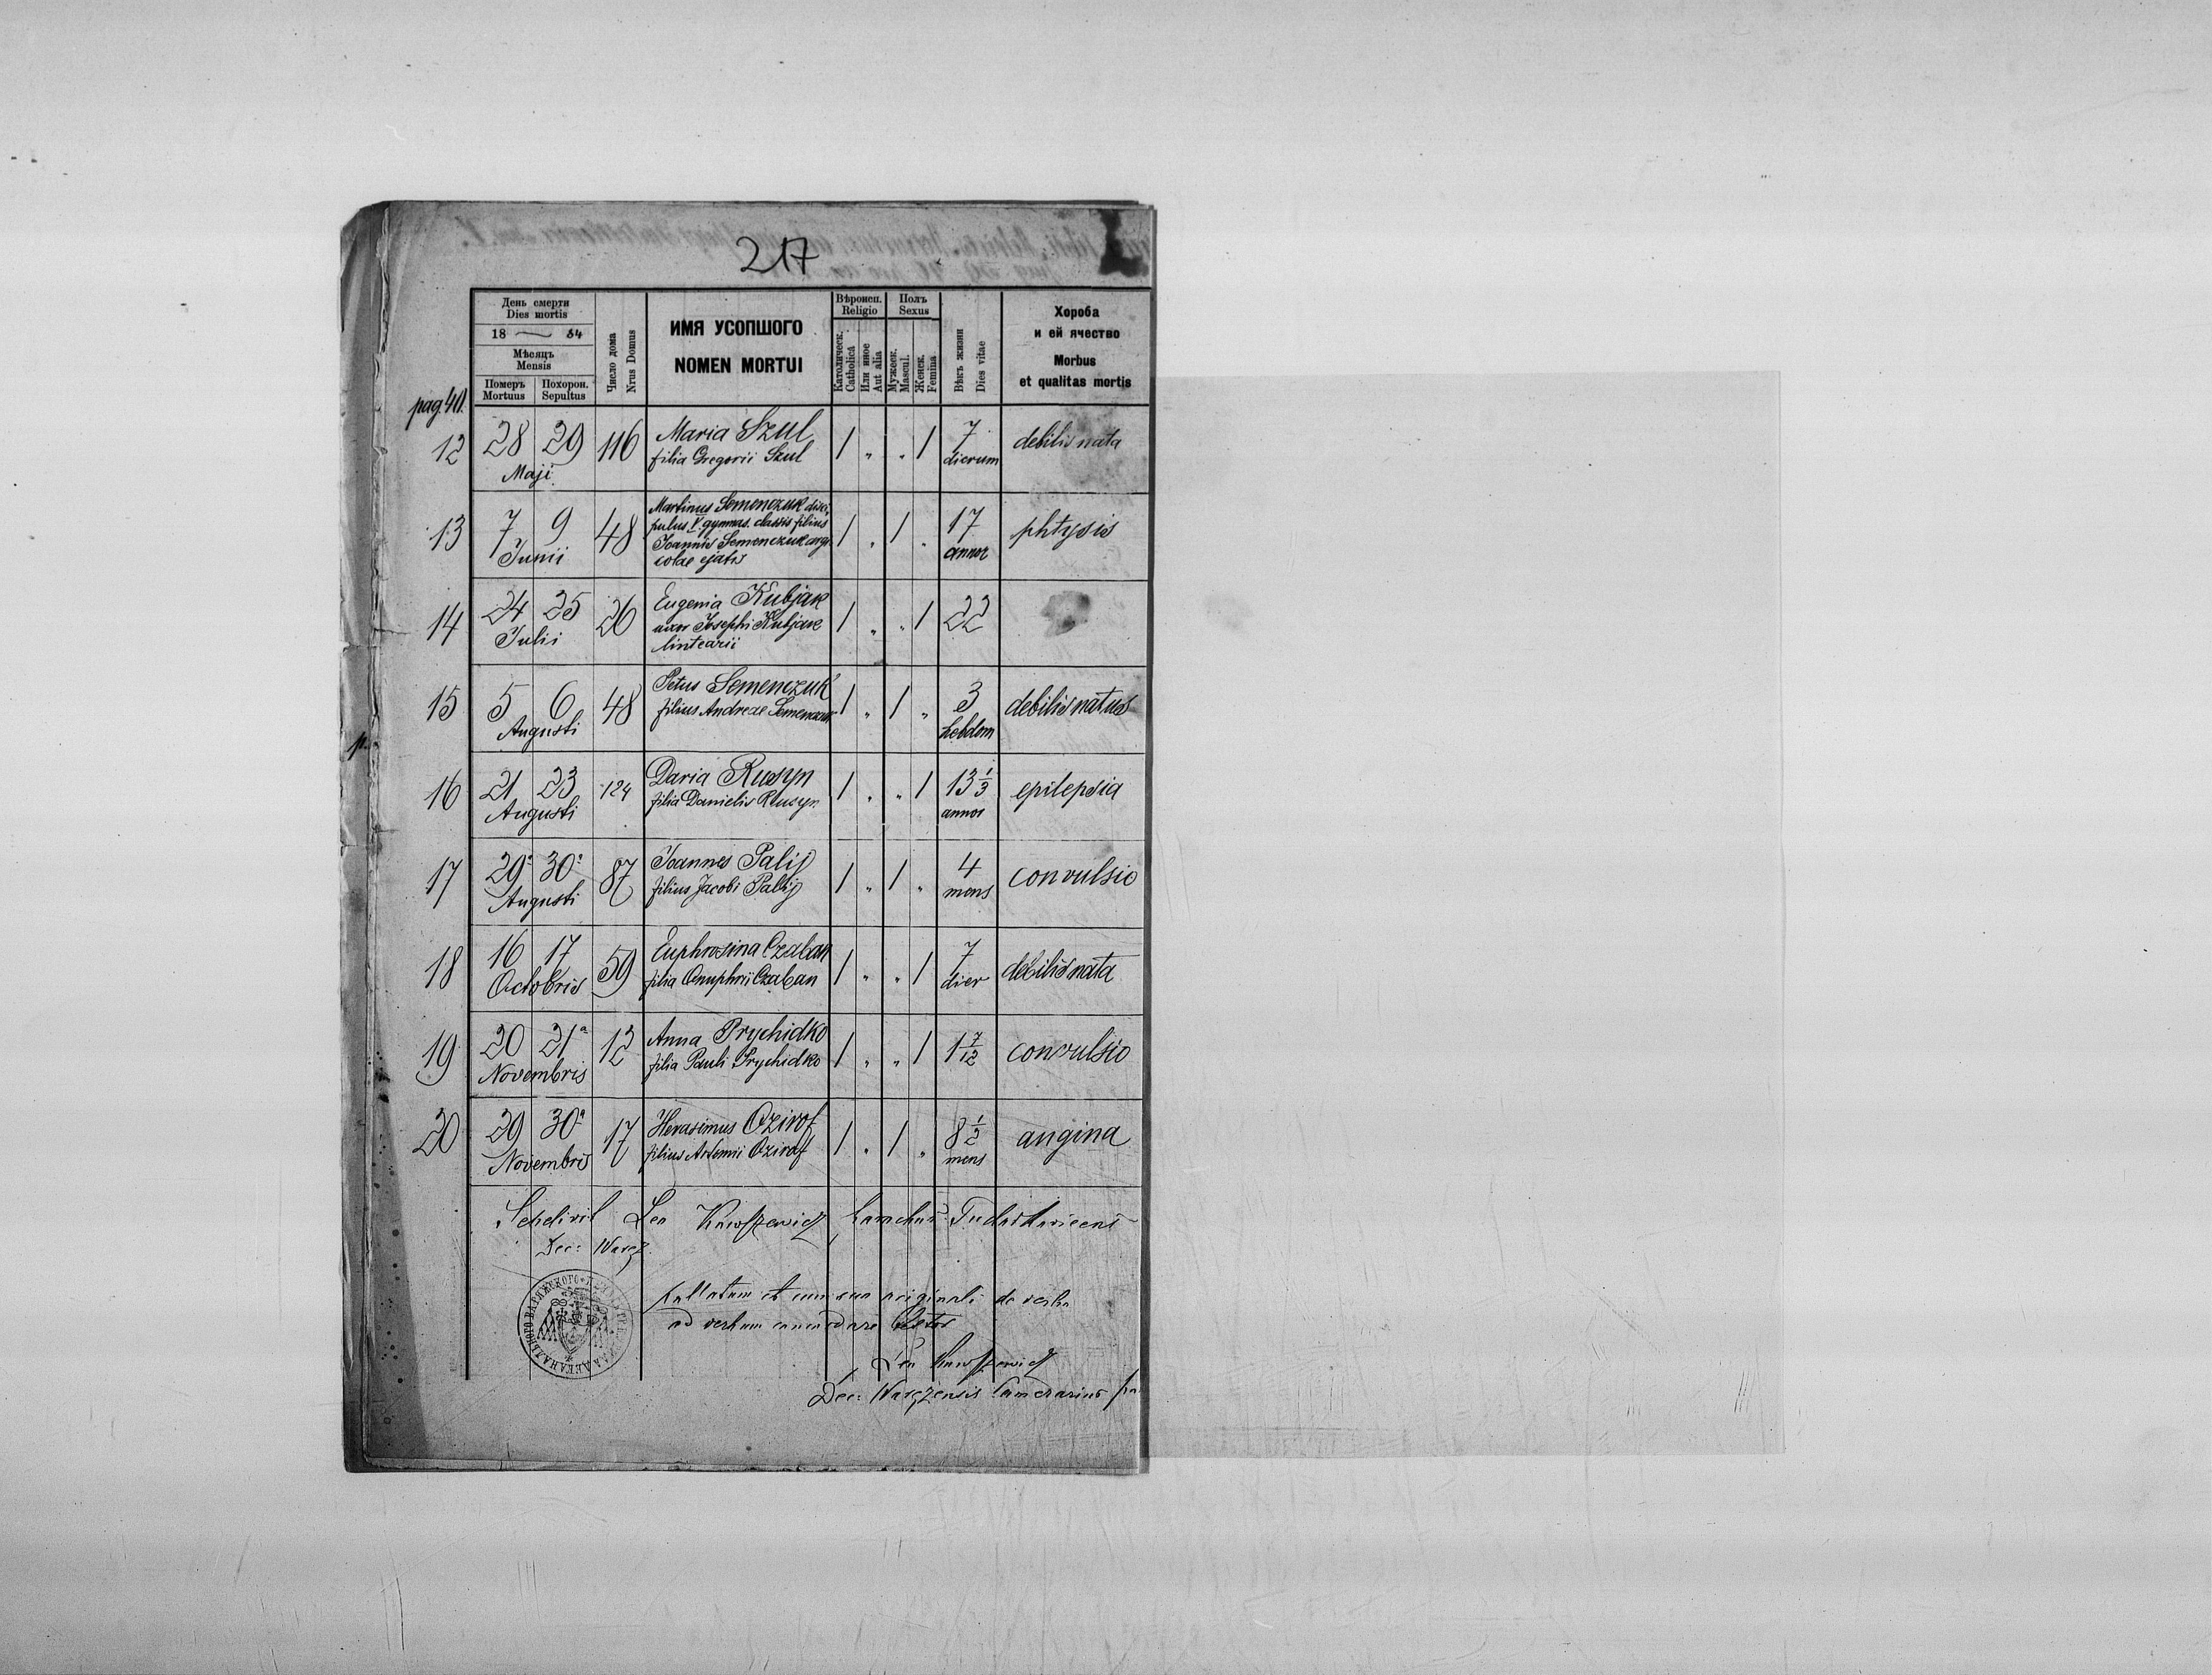 217
День смерти
Dies mortis
18 — 84
Мѣсяць
Mensis
Померъ Mortuus
Похорон. Sepultus
Число дома
Nrus Domus
ИМЯ УСОПШОГО
NOMEN MORTUI
Вѣроисп.
Religio
Католическ.
Catholica
Или иное
Aut alia
Полъ
Sexus
Мужеск.
Mascul.
Женск.
Femina
Вѣкъ жизни
Dies vitae
Хороба
и ей ячество
Morbus
et qualitas mortis
pag. 40.
12 28 29 116 Maria Szul 1 " " 1 7 debilis nata
Maji filia Gregorii Szul dierum
13 7 9 48 Martinus Semenczuk disci- 1 " 1 " 17 phtysis
Junii pulus V gymnas. classis filius annor
Joannis Semenczuk agri-
colae
14 24 25 26 Eugenia Kubjak 1 " " 1 22
Julii uxor Josephi Kubjak
lintearii
15 5 6 48 Petrus Semenczuk 1 " 1 " 3 debilis natus
Augusti filius Andreae Semenczuk hebdom
16 21 23 124 Daria Rusyn 1 " " 1 13 1/3 epilepsia
Augusti filia Danielis Rusyn annor
17 29 30 87 Joannes Palij 1 " 1 " 4 convulsio
Augusti filius Jacobi Palij mens
18 16 17 59 Euphrosina Czaban 1 " " 1 7 debilis nata
Octobris filia Onuphrii Czaban dier
19 20 21a 12 Anna Prychidko 1 " " 1 1 7/12 convulsio
Novembris filia Pauli Prychidko
20 29 30a 17 Herasimus Ozirof 1 " 1 " 8 1/2 angina
Novembris filius Artemii Ozirof mens
Sepelivit Leo parochus
Dec: Waręz.
et cum suo originali de verbo
ad verbum
Leo
Dec: Waręzensis Camerarius